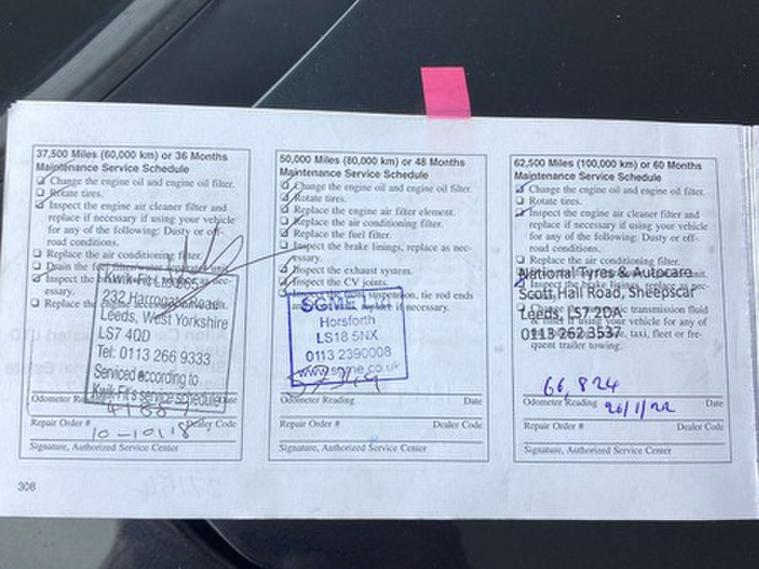 37,500 Miles (60,000 km) or 36 Months
Maintenance Service Schedule
Change the engine oil and engine oil filter.
Rotate tires.
Inspect the engine air cleaner filter and
replace if necessary if using your vehicle
for any of the following: Dusty or off-
road conditions.
Replace the air conditioning filter.
Drain the fuel filter/water separator unit.
Inspect the nec-
essary.
Replace the
Kwik-Fit Ltd 865
232 Harrogate Road
Leeds, West Yorkshire
LS7 4QD
Tel: 0113 266 9333
Serviced according to
Kwik-Fit's service schedule
Odometer Reading Date
Repair Order # Dealer Code
Signature, Authorized Service Center
308
50,000 Miles (80,000 km) or 48 Months
Maintenance Service Schedule
Change the engine oil and engine oil filter.
Rotate tires.
Replace the engine air filter element.
Replace the air conditioning filter.
Replace the fuel filter.
Inspect the brake linings, replace as nec-
essary.
Inspect the exhaust system.
Inspect the CV joints.
Inspect the front suspension, tie rod ends
replace if necessary.
SGME Ltd
Horsforth
LS18 5NX
0113 2390008
www.sgme.co.uk
Odometer Reading Date
Repair Order # Dealer Code
Signature, Authorized Service Center
62,500 Miles (100,000 km) or 60 Months
Maintenance Service Schedule
Change the engine oil and engine oil filter.
Rotate tires.
Inspect the engine air cleaner filter and
replace if necessary if using your vehicle
for any of the following: Dusty or off-
road conditions.
Replace the air conditioning filter.
unit.
Inspect the brake linings, replace as nec-
essary.
transmission fluid
& filter if using your vehicle for any of
taxi, fleet or fre-
quent trailer towing.
National Tyres & Autocare
Scott Hall Road, Sheepscar
Leeds, LS7 2DA
0113 262 3537
66,824
Odometer Reading 26/1/22 Date
Repair Order # Dealer Code
Signature, Authorized Service Center